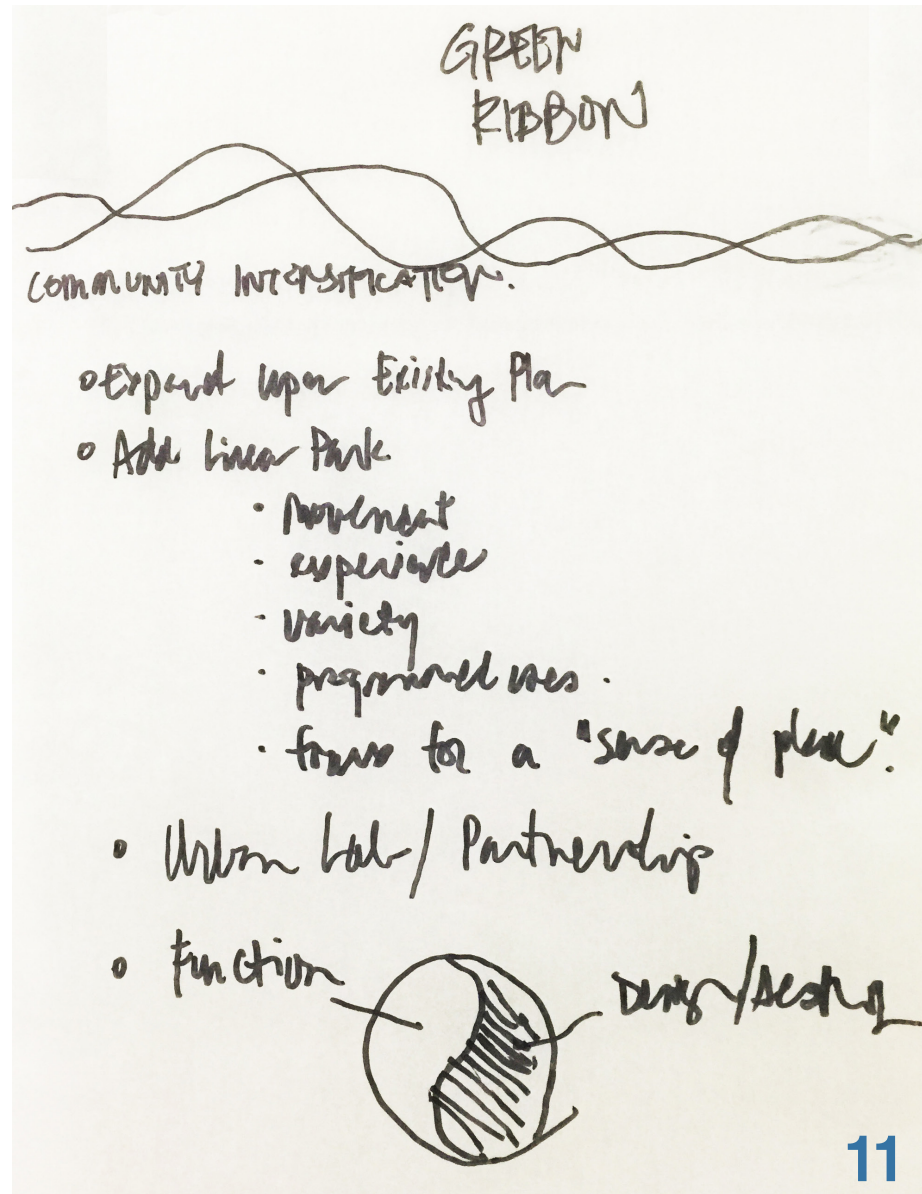 GREEN
RIBBON
COMMUNITY INTENSIFICATION.
Expand Upon Existing Plan
Add Linear Park
movement
experience
variety
programmed uses.
for a "sense of place".
Urban Lab / Partnership
Function
Design/
11